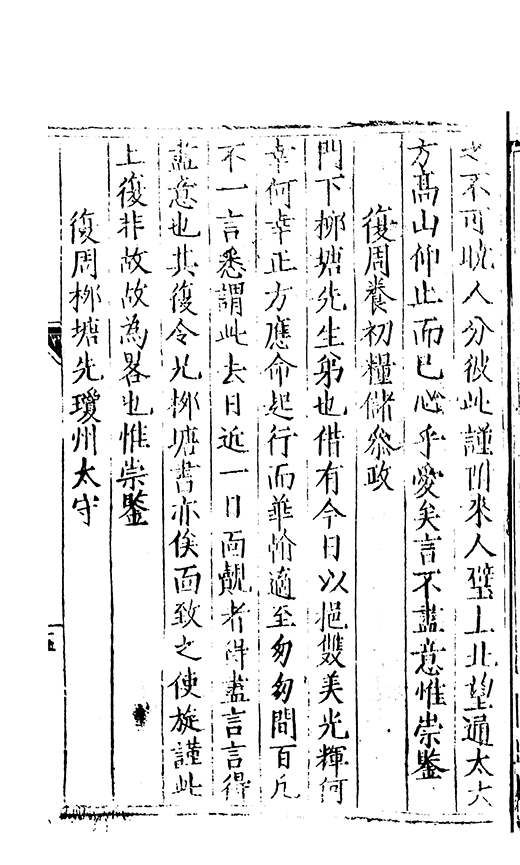 之不可晚人分彼此謹附來人璧上北望逼太大
方髙山仰止而已心乎愛矣言不盡意惟崇鑒
復周養初糧儲叅政
門下栁塘先生弟也借有今日以挹雙美光輝何
幸何幸正方應命起行而華翰適至匆匆間百凡
不一言悉謂此去日近一日面覿者得盡言言得
盡意也其復令兄栁塘書亦俟面致之使旋謹此
上復非故故為畧也惟崇鑒
復周栁塘先瓊州太守